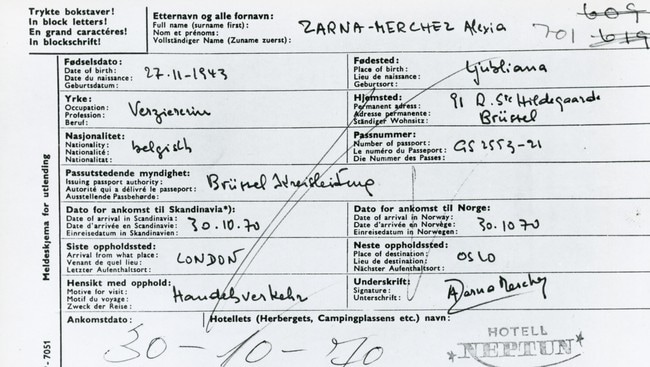 Trykte bokstaver!
In block letters!
En grand caractères!
In blockschrift!
Etternavn og alle fornavn:
Full name (surname first):
Nom et prénoms:
Vollständiger Name (Zuname zuerst):
ZARNA-MERCHEZ Alexia
701
609
619
Fødselsdato:
Date of birth:
Date du naissance:
Geburtsdatum:
27-11-1943
Fødested:
Place of birth:
Lieu de naissance:
Geburtsort:
Ljubliana
Yrke:
Occupation:
Profession:
Beruf:
Verziererin
Hjemsted:
Permanent adress:
Adresse permanente:
Ständiger Wohnsitz:
91 R. Ste Hildegaarde
Brüssel
Nasjonalitet:
Nationality:
Nationalité:
Nationalitat:
belgisch
Passnummer:
Number of passport:
Le numéro du Passeport:
Die Nummer des Passes:
GS 2553-21
Passutstedende myndighet:
Issuing passport authority:
Autorité qui a délivré le passeport:
Ausstellende Passbehørde:
Brüssel Kreisleitung
Dato for ankomst til Skandinavia*):
Date of arrival in Scandinavia:
Date d'arrivée en Scandinavie:
Einreisedatum in Skandinavien:
30.10.70
Dato for ankomst til Norge:
Date of arrival in Norway:
Date d'arrivée en Norvège:
Einreisedatum in Norwegen:
30.10.70
Siste oppholdssted:
Arrival from what place:
Venant de quel lieu:
Letzter Aufenthaltsort:
LONDON
Neste oppholdssted:
Place of destination:
Lieu de destination:
Nächster Aufenthaltsort:
OSLO
Hensikt med opphold:
Motive for visit:
Motif du voyage:
Zweck der Reise:
Handelsverkehr
Underskrift:
Signature:
Unterschrift:
AZarna Merchez
Ankomstdato:
30-10-70
Hotellets (Herbergets, Campingplassens etc.) navn:
HOTELL
NEPTUN
Meldeskjema for utlending
7051